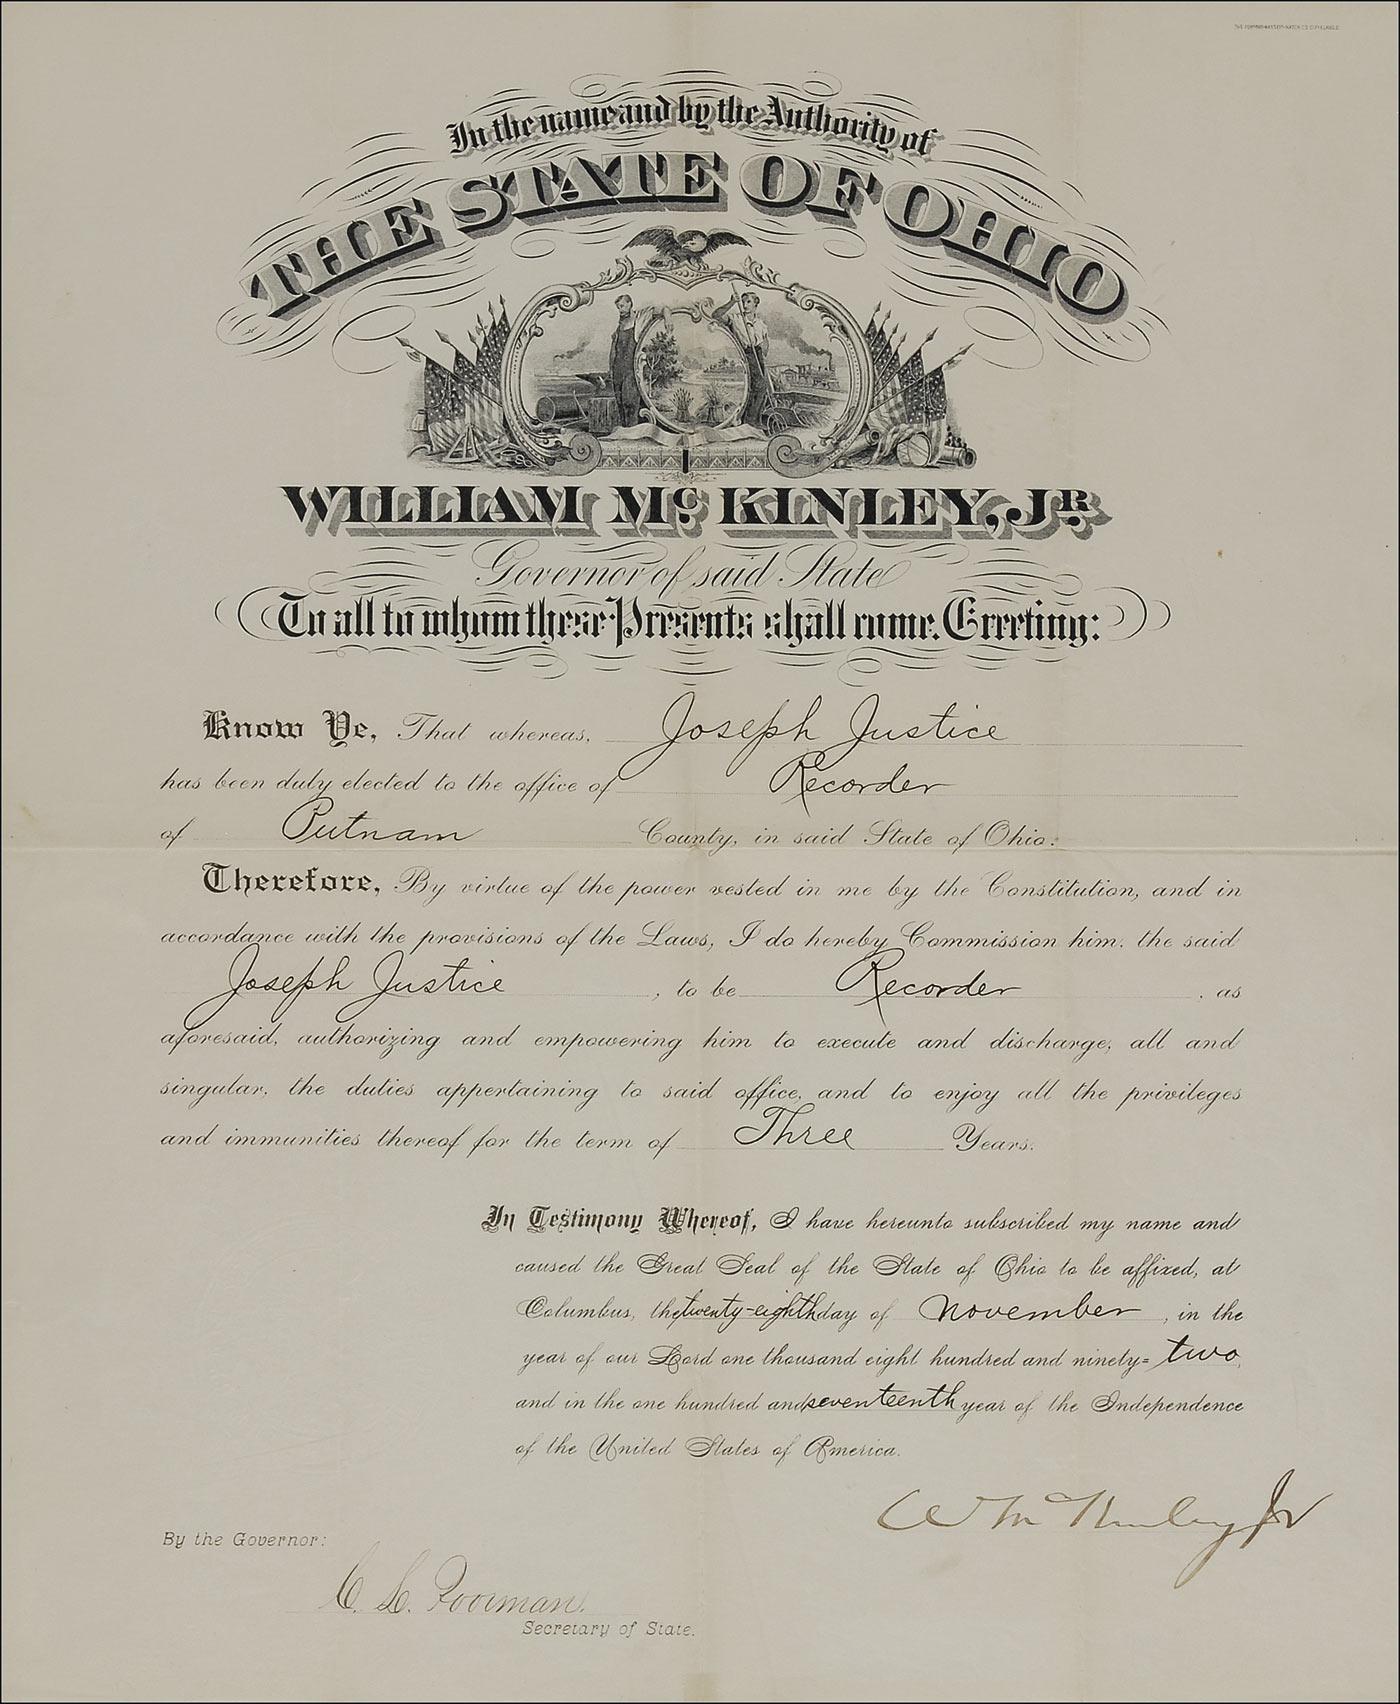 In the name and by the Authority of
THE STATE OF OHIO
WILLIAM McKINLEY, JR.
Governor of said State
To all to whom these Presents shall come, Greeting:
Know Ye, That whereas, Joseph Justice
has been duly elected to the office of Recorder
of Putnam County, in said State of Ohio:
Therefore, By virtue of the power vested in me by the Constitution, and in
accordance with the provisions of the Laws, I do hereby Commission him, the said
Joseph Justice, to be Recorder, as
aforesaid, authorizing and empowering him to execute and discharge, all and
singular, the duties appertaining to said office, and to enjoy all the privileges
and immunities thereof for the term of Three Years.
In Testimony Whereof, I have hereunto subscribed my name and
caused the Great Seal of the State of Ohio to be affixed, at
Columbus, the twenty-eighth day of November, in the
year of our Lord one thousand eight hundred and ninety=two,
and in the one hundred and seventeenth year of the Independence
of the United States of America.
W McKinley Jr
By the Governor:
C. L. Poorman.
Secretary of State.